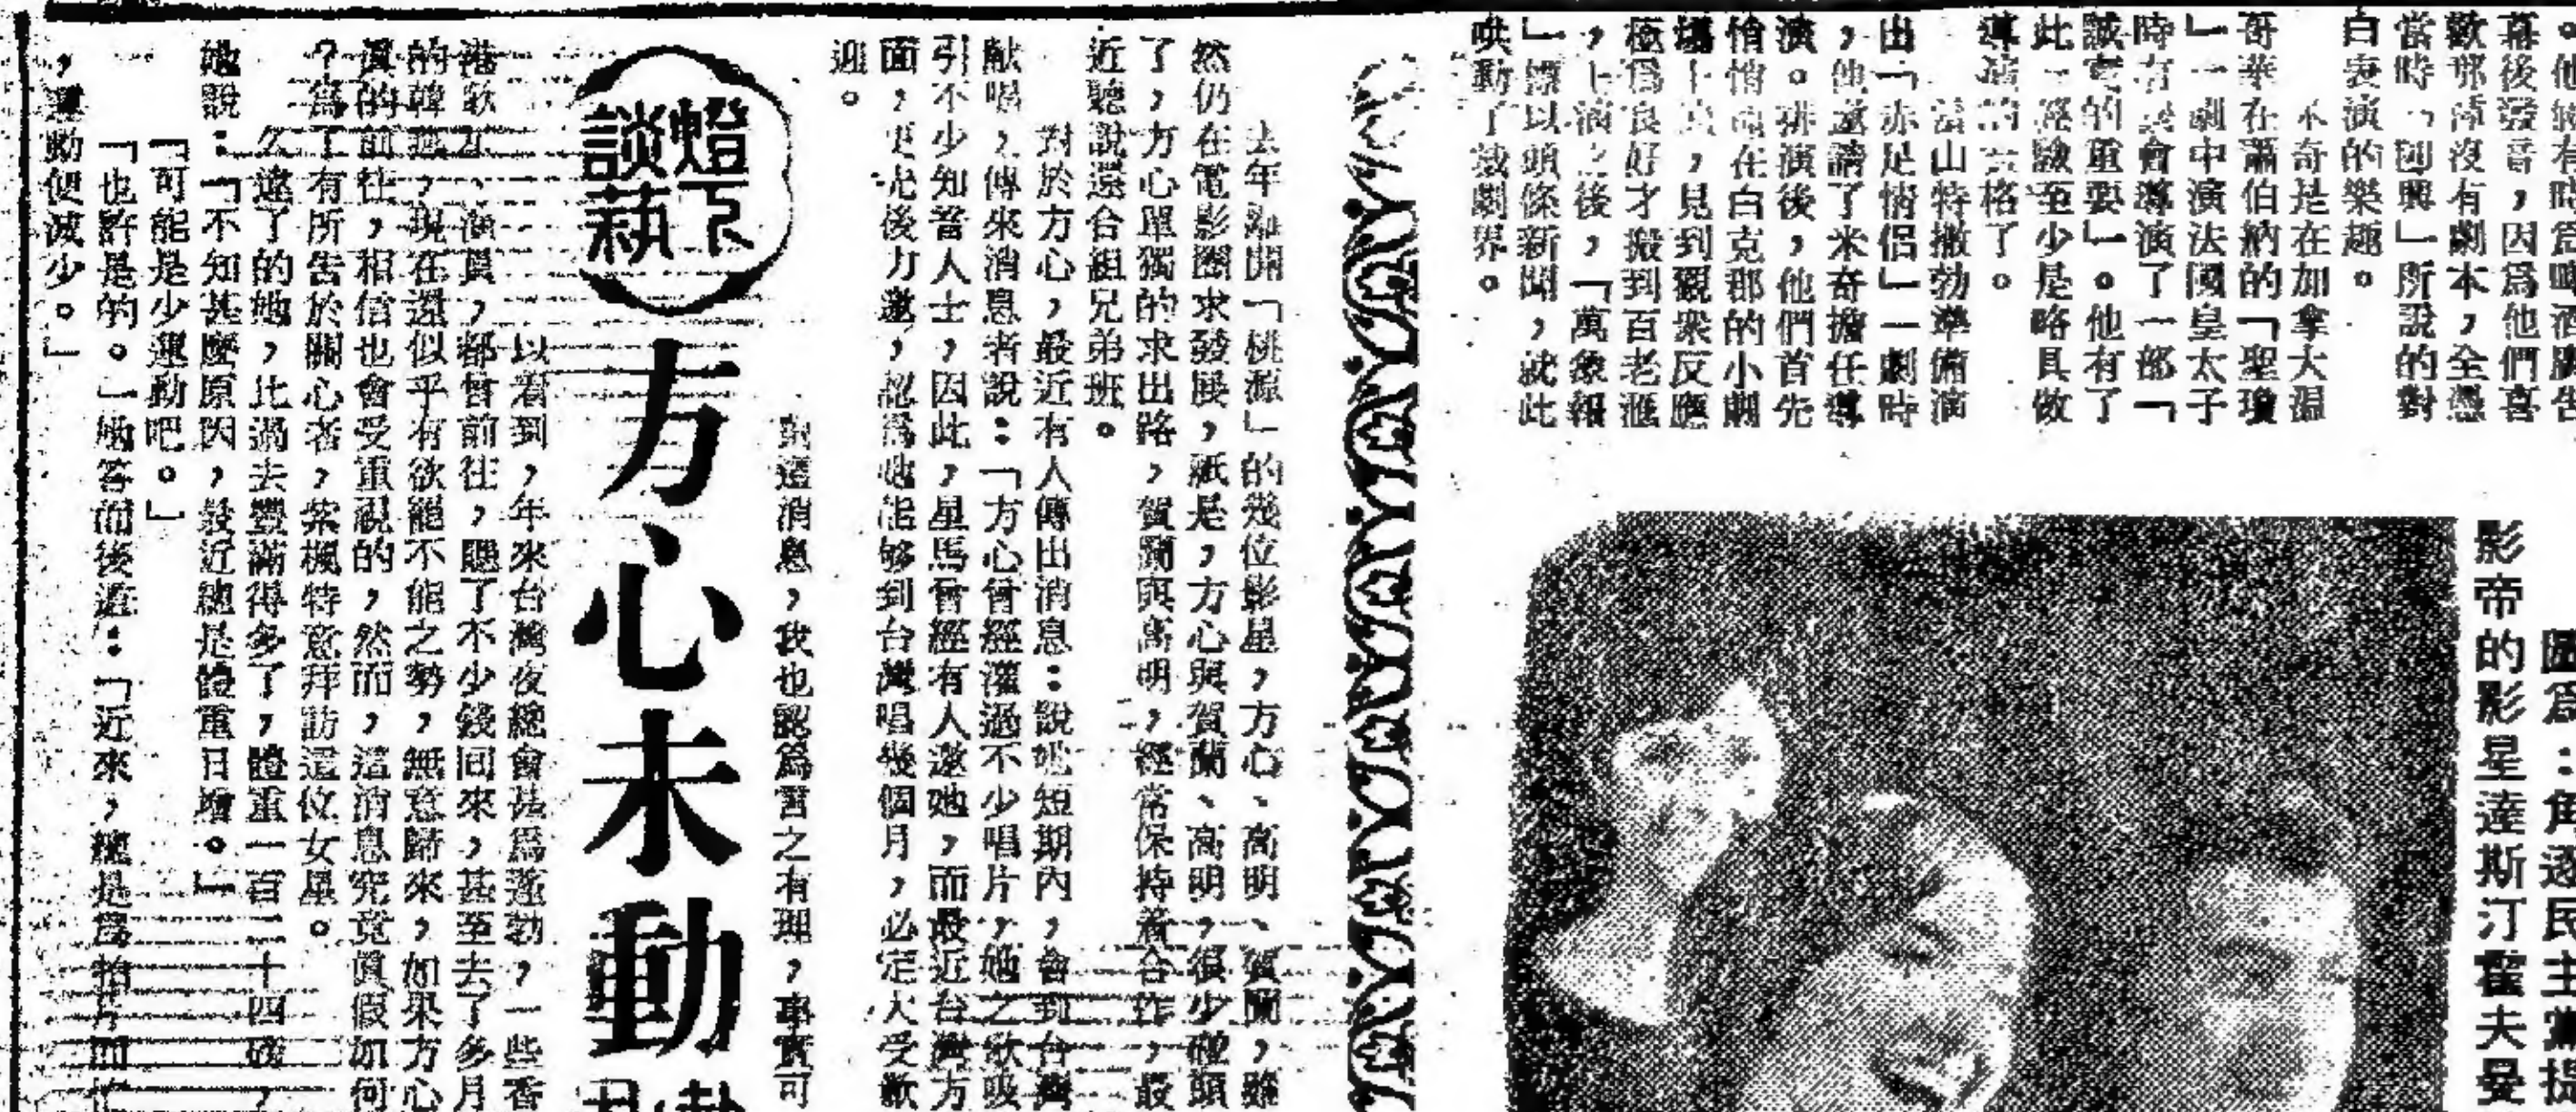 幕後發音，因為他們喜
歡那齣沒有劇本，全憑
當時「即興」所說的對
白表演的樂趣。
米奇是在加拿大溫
哥華在蕭伯納的「聖瓊
」一劇中演法國皇太子
時有機會導演了一部「
誠實的重要」。他有了
此一經驗至少是略具做
導演的資格了。
當山特撒勃準備演
出「赤足情侶」一劇時
，他邀請了米奇擔任導
演。排演後，他們首先
悄悄在白克郡的小劇
場上演，見到觀衆反應
極爲良好才搬到百老滙
，上演之後，「萬象報
」標以頭條新聞，就此
哄動了戲劇界。
影帝的影星達斯汀霍夫曼
圖爲：角逐民主黨提
燈下談藝
方心未動
去年離開「桃源」的幾位影星，方心、高明、賀蘭，雖
然仍在電影圈求發展，祇是，方心與賀蘭、高明，很少碰頭
了，方心單獨的求出路，賀蘭與高明，經常保持着合作，最
近聽說還合組兄弟班。
對於方心，最近有人傳出消息：說她短期內，會到台灣
献唱，傳來消息者說：「方心曾經灌過不少唱片，她之歌吸
引不少知音人士，因此，星馬曾經有人邀她，而最近台灣方
面，更允後力邀，認爲她能够到台灣唱幾個月，必定大受歡
迎。
對這消息，我也認爲言之有理，事實可
以看到，年來台灣夜總會甚爲蓬勃，一些香
港歌星、演員，都曾前往，賺了不少錢回來，甚至去了多月
的韓 ，現在還似乎有欲罷不能之勢，無意歸來，如果方心
眞的前往，相信也會受重視的，然而，這消息究竟眞假如何
？爲了有所告於關心者，紫楓特意拜訪這位女星。
久違了的她，比過去豐滿得多了，體重一百二十四磅，
她說：「不知甚麼原因，最近總是體重日增。」
「可能是少運動吧。」
「也許是的。」她答而後道：「近來，總是爲拍片而忙
，運動便減少。」